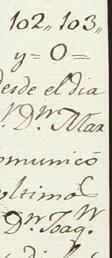 102,, 103,,
y = O =
desde el dia
Dn. Mar
omunicó
ultima
Dn. Joaq.